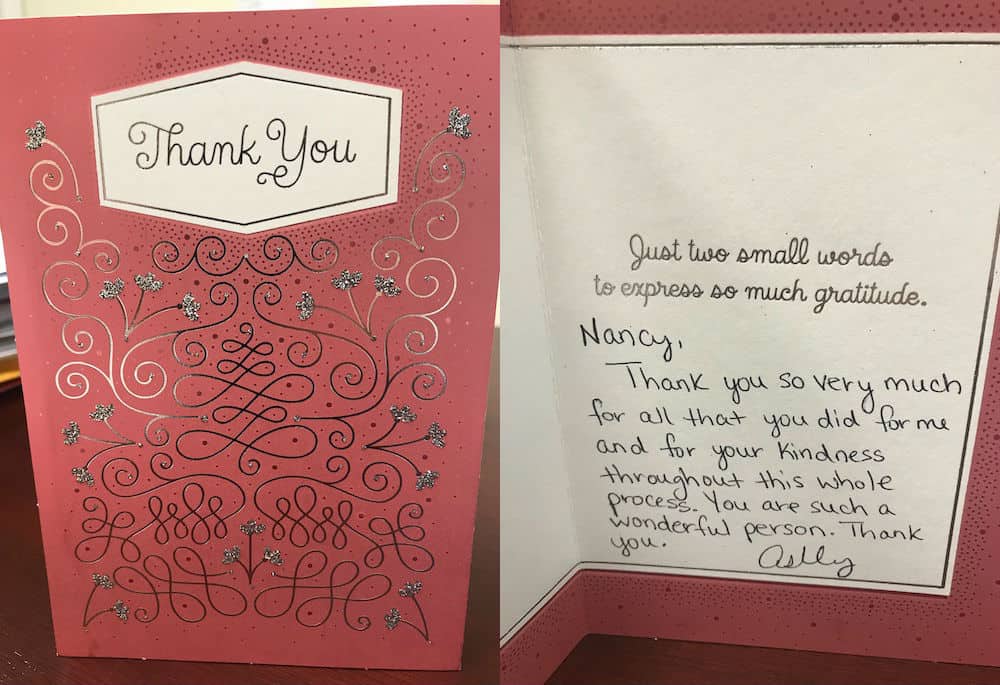 Thank You
Just two small words
to express so much gratitude.
Nancy,
Thank you so very much
for all that you did for me
and for your kindness
throughout this whole
process. You are such a
wonderful person. Thank
you.